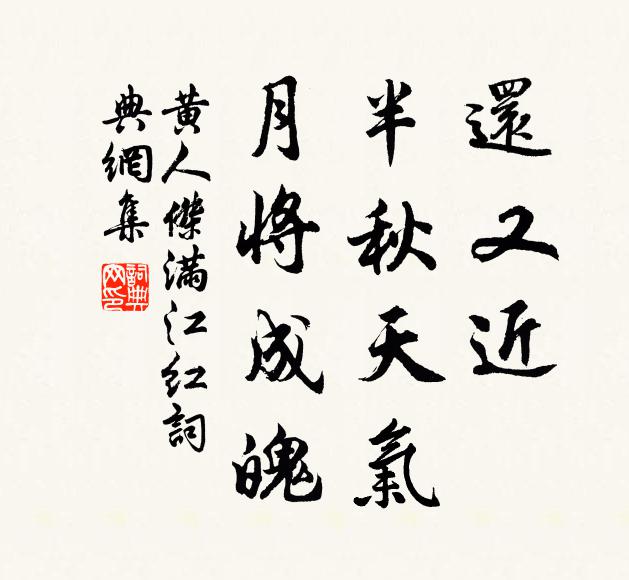 還又近
半秋天氣
月將成魄
黄人傑滿江紅詞
典網集
詞典网印